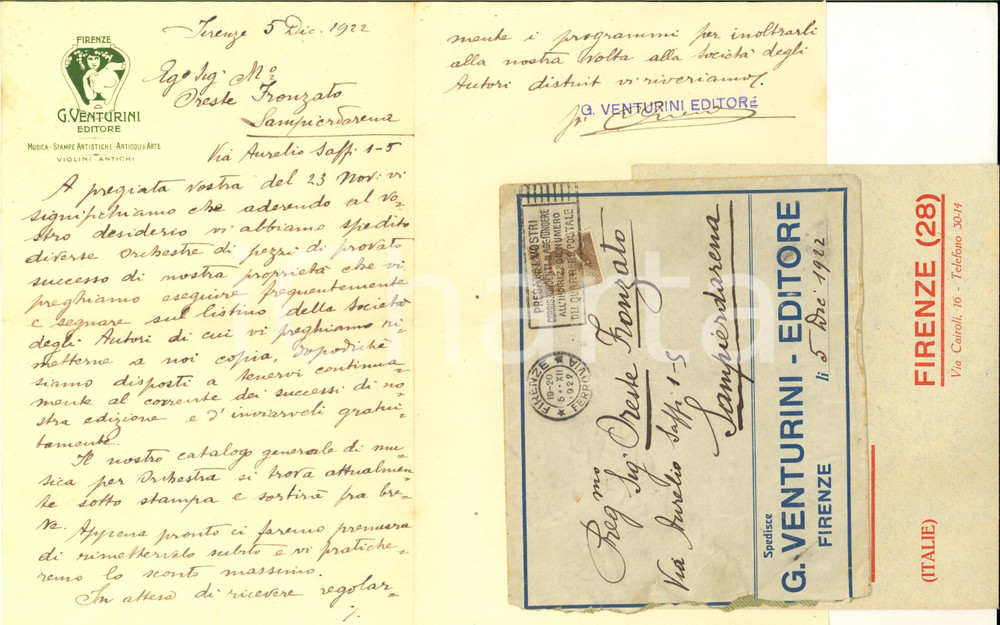 FIRENZE
G. VENTURINI
EDITORE
MUSICA - STAMPE ARTISTICHE - ARTICOLI D'ARTE
VIOLINI ANTICHI
Firenze 5 Dic. 1922
Ego Sig Mo
Oreste Fronzato
Sampierdarena
Via Aurelio Saffi 1-5
A pregiata vostra del 23 Nov: vi
significhiamo che aderendo al vo=
stro desiderio vi abbiamo spedito
diverse orchestre di pezzi di provato
successo di nostra proprietà che vi
preghiamo eseguire frequentemente
e segnare sul listino della Società
degli Autori di cui vi preghiamo ri=
metterne a noi copia, dopodichè
siamo disposti a tenervi continua=
mente al corrente dei successi di no=
stra edizione e d'inviarveli gratui=
tamente.
Il nostro catalogo generale di mu=
sica per Orchestra si trova attualmen=
te sotto stampa e sortirà fra bre=
ve.
Appena pronto ci faremo premura
di rimettervelo subito e vi pratiche=
remo lo sconto massimo.
In attesa di ricevere regolar=
/.
mente i programmi per inoltrarli
alla nostra volta alla Società degli
Autori distint vi riveriamo/.
G. VENTURINI EDITORE
PREGARE I VOSTRI
CORRISPONDENTI DI AGGIUNGERE
ALL'INDIRIZZO IL NUMERO
DEL QUARTIERE POSTALE
FIRENZE FERROVIA
19-20
5 · XII
1922
Preg mo
Sig. Oreste Fronzato
Via Aurelio Saffi 1-5
Sampierdarena
Spedisce
G. VENTURINI - EDITORE
FIRENZE
li 5 Dic 1922
FIRENZE (28)
Via Cairoli, 16 - Telefono 30-14
(ITALIE)